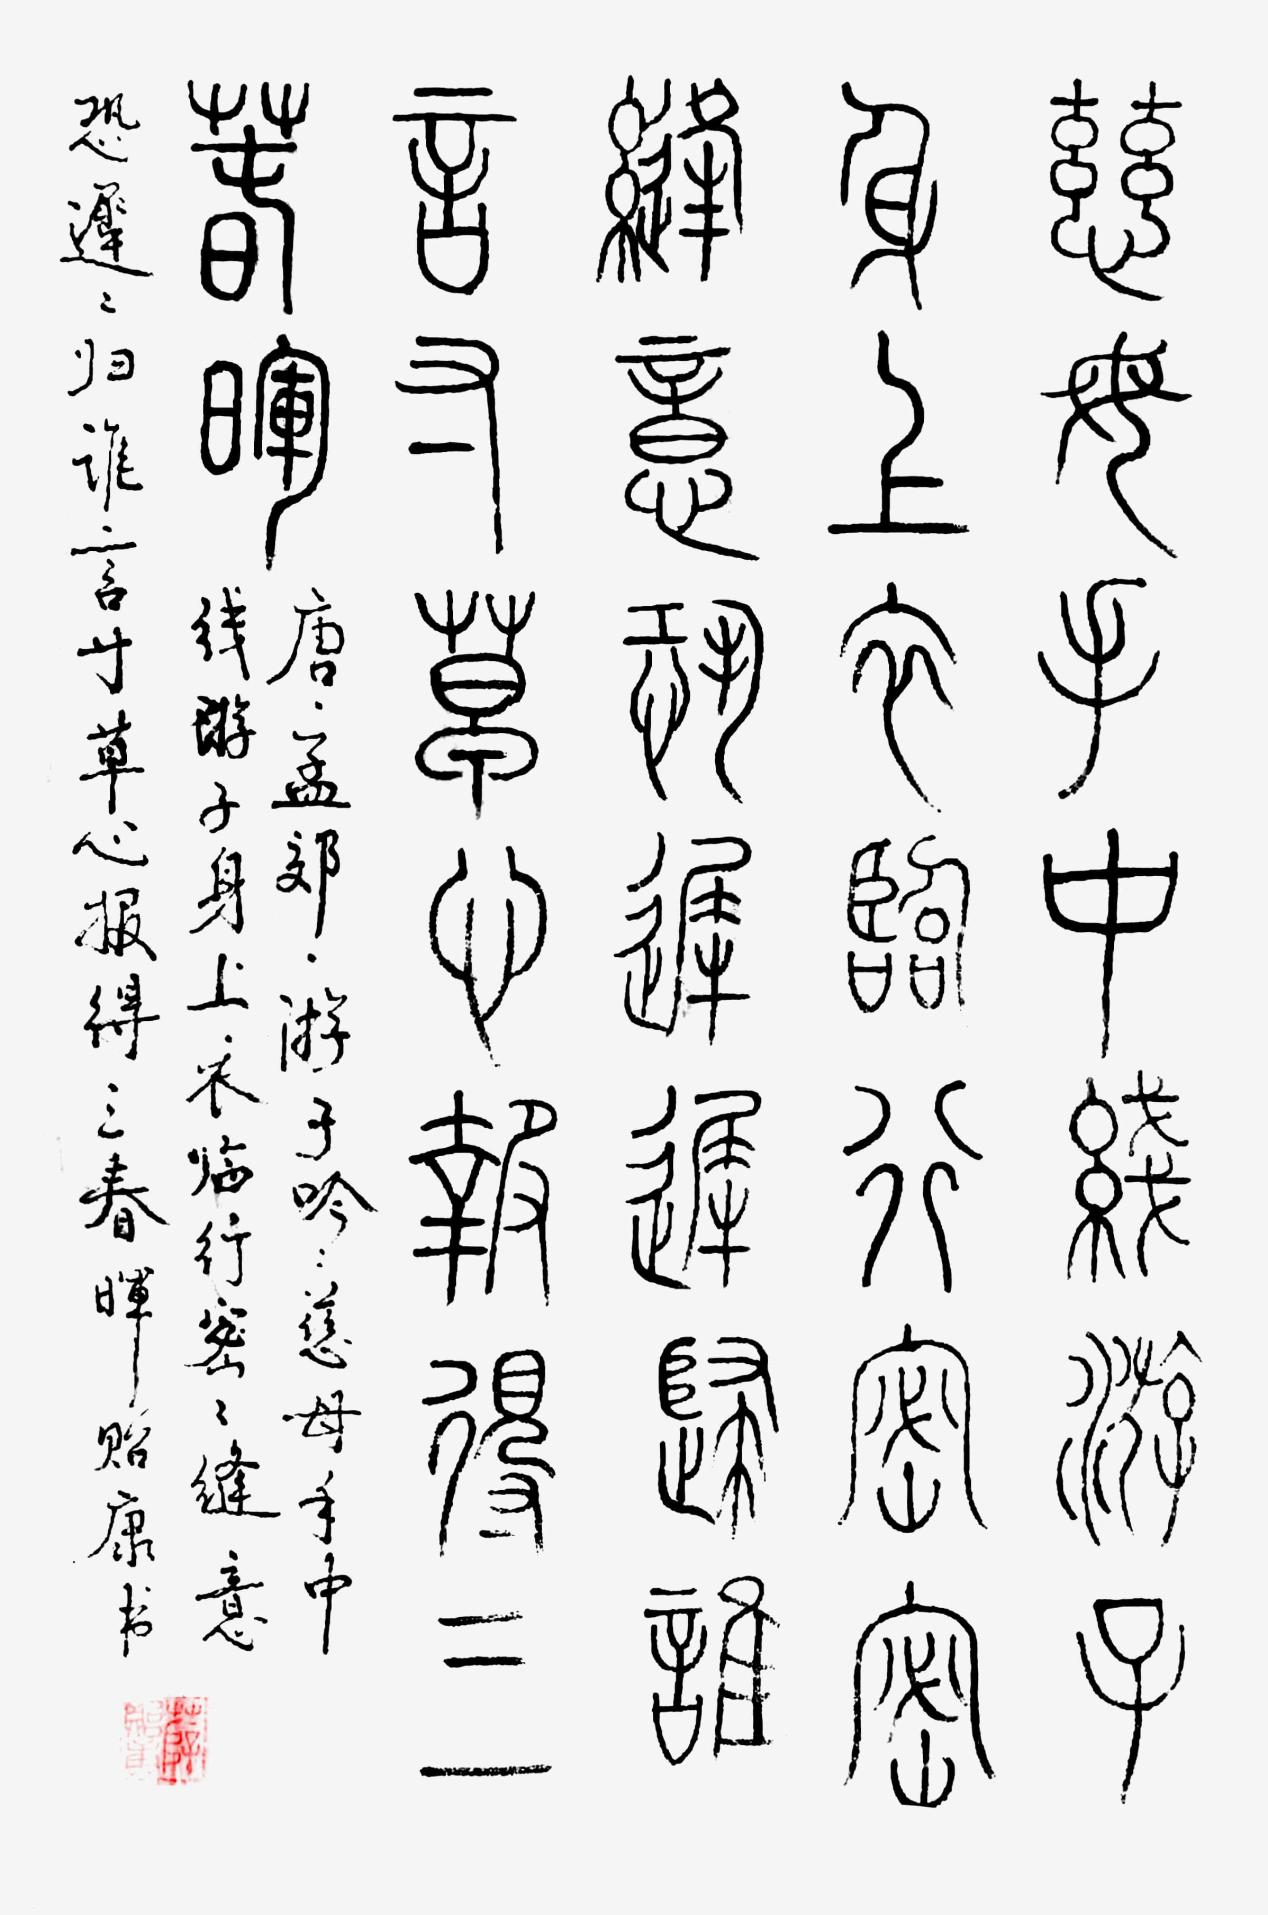 慈母手中綫游子
身上衣臨行密密
縫意恐遲遲歸誰
言寸草心報得三
春暉
唐·孟郊·游子吟：慈母手中
线游子身上衣临行密〻缝意
恐遲〻归谁言寸草心报得三春暉贻康书